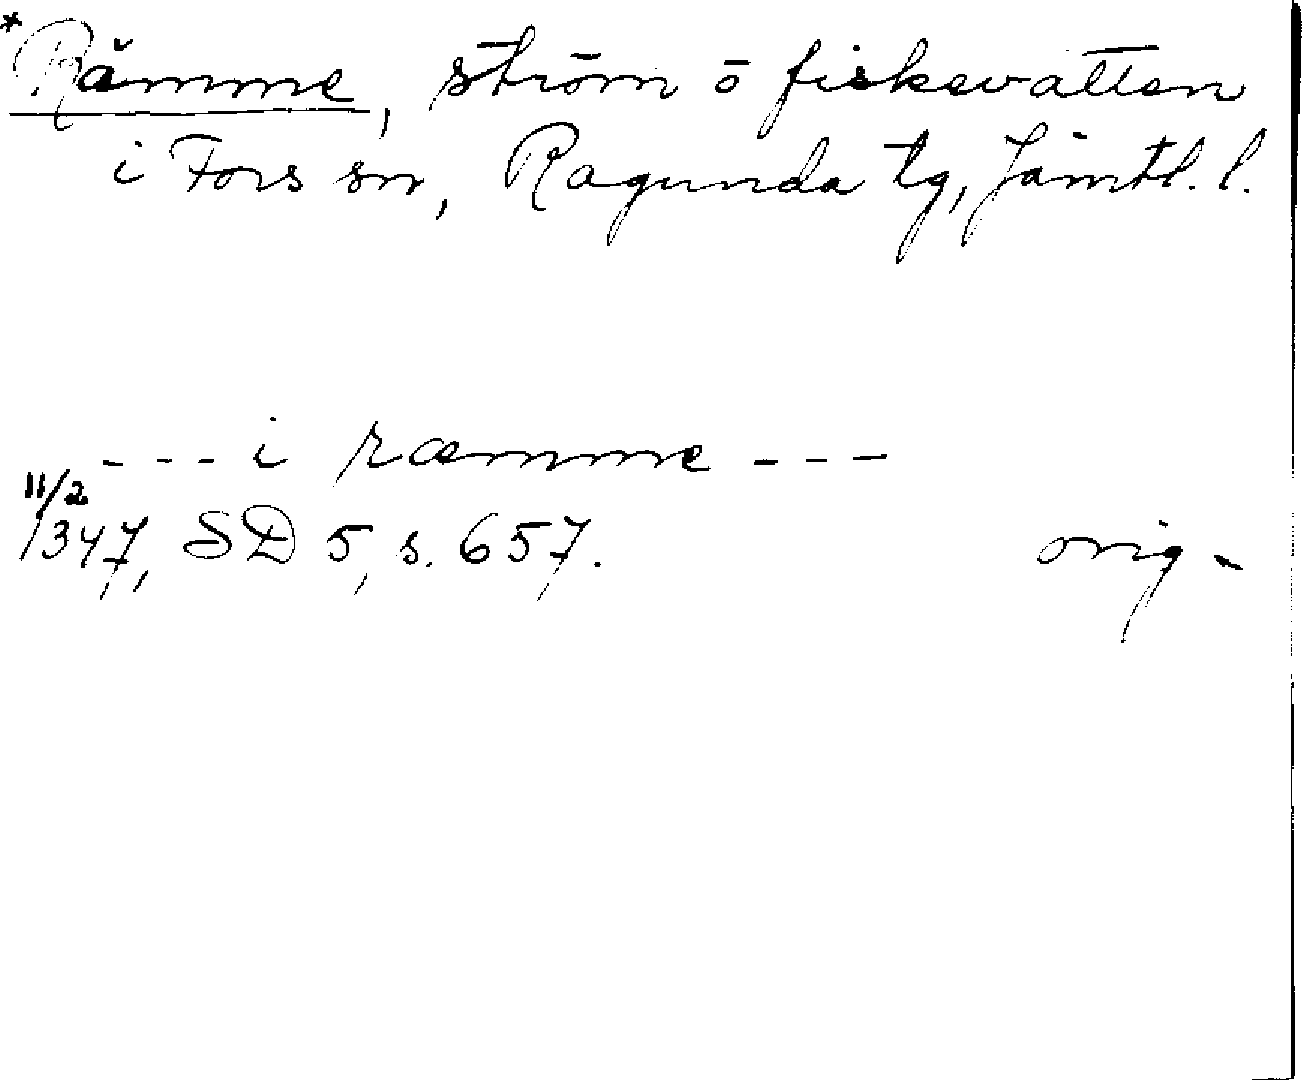 *Rämme, ström ō fiskevatten
i Fors sn, Ragunda tg, Jämtl. l.
- - - i ræmme - - -
11/2
1347, SD 5, s. 657. orig.